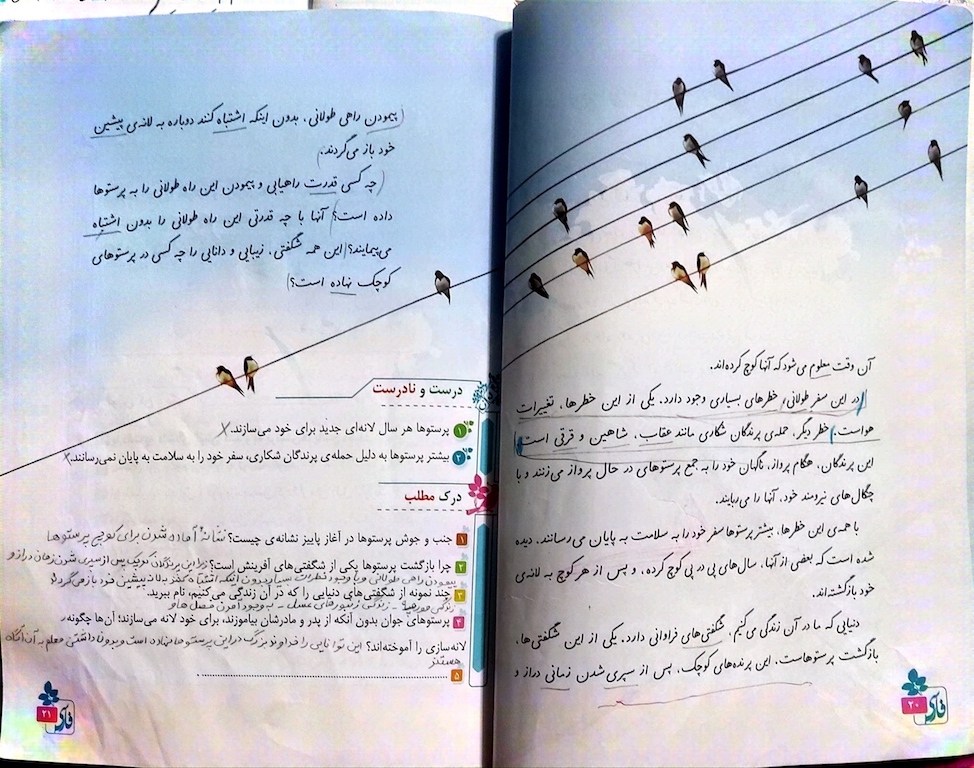 آن وقت معلوم می‌شود که آنها کوچ کرده‌اند.
در این سفر طولانی، خطرهای بسیاری وجود دارد. یکی از این خطرها، تغییرات
هواست. خطر دیگر، حمله‌ی پرندگان شکاری مانند عقاب، شاهین و قرقی است.
این پرندگان، هنگام پرواز، ناگهان خود را به جمع پرستوهای در حال پرواز می‌زنند و با
چنگال‌های نیرومند خود، آنها را می‌ربایند.
با همه‌ی این خطرها، بیشتر پرستوها سفر خود را به سلامت به پایان می‌رسانند. دیده
شده است که بعضی از آنها، سال‌های پی در پی کوچ کرده، و پس از هر کوچ به لانه‌ی
خود بازگشته‌اند.
دنیایی که ما در آن زندگی می‌کنیم، شگفتی‌های فراوانی دارد. یکی از این شگفتی‌ها،
بازگشت پرستوهاست. این پرنده‌های کوچک، پس از سپری شدن زمانی دراز و
فارسی
۲۰
پیمودن راهی طولانی، بدون اینکه اشتباه کنند دوباره به لانه‌ی پیشین
خود باز می‌گردند.
چه کسی قدرت راهیابی و پیمودن این راه طولانی را به پرستوها
داده است؟ آنها با چه قدرتی این راه طولانی را بدون اشتباه
می‌پیمایند؟ این همه شگفتی، زیبایی و دانایی را چه کسی در پرستوهای
کوچک نهاده است؟
درست و نادرست
۱ پرستوها هر سال لانه‌ای جدید برای خود می‌سازند. ✗
۲ بیشتر پرستوها به دلیل حمله‌ی پرندگان شکاری، سفر خود را به سلامت به پایان نمی‌رسانند. ✗
درک مطلب
۱ جنب و جوش پرستوها در آغاز پاییز نشانه‌ی چیست؟ نشانه آماده شدن برای کوچ پرستوها
۲ چرا بازگشت پرستوها یکی از شگفتی‌های آفرینش است؟ زیرا این پرندگان کوچک پس از سپری شدن زمان دراز و
پیمودن راهی طولانی و با وجود خطرات بسیار بدون اینکه اشتباه کنند به لانه پیشین خود باز می‌گردند
۳ چند نمونه از شگفتی‌های دنیایی را که در آن زندگی می‌کنیم، نام ببرید.
زندگی مورچه‌ها - زندگی زنبورهای عسل - به وجود آمدن فصل ها و
۴ پرستوهای جوان بدون آنکه از پدر و مادرشان بیاموزند، برای خود لانه می‌سازند؛ آن‌ها چگونه
لانه‌سازی را آموخته‌اند؟ این توانایی را خداوند بزرگ در این پرستوها نهاده است و بدون داشتن معلم به آن آگاه
هستند
۵
فارسی
۲۱